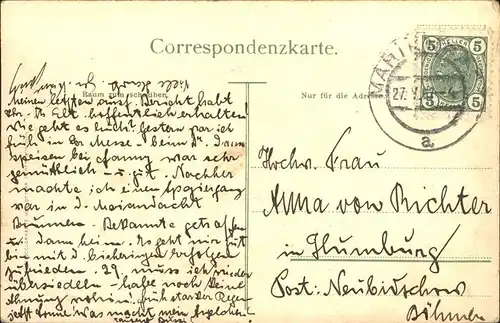 Correspondenzkarte.
Raum zum schreiben.
Nur für die Adresse
MARI
27. V
a
5 HELLER 5
5 5
meinen letzten ausf. Bericht habt
Ihr, lb. Elt. hoffentlich erhalten!
Wie geht es Euch? Gestern war ich
früh in der Messe - beim
speisen bei Fanny war sehr
gemütlich - u. gut. Nachher
machte ich einen Spaziergang
war in d. Maiandacht
Bekannte getroffen
u. dann heim. Es geht mir gut
bin mit d. bisherigen Erfolgen
zufrieden. 29. muss ich wieder
übersiedeln - habe noch keine
Ahnung wohin. früh starker Regen
jetzt Sonne was macht mein
Hochw. Frau
Anna von Richter
in Humburg
Post: Neubidschow
Böhmen